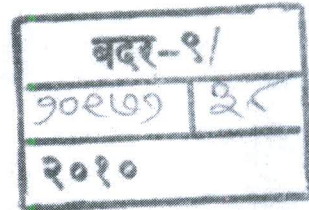 बदर-९/
१०९७१ ३८
२०१०